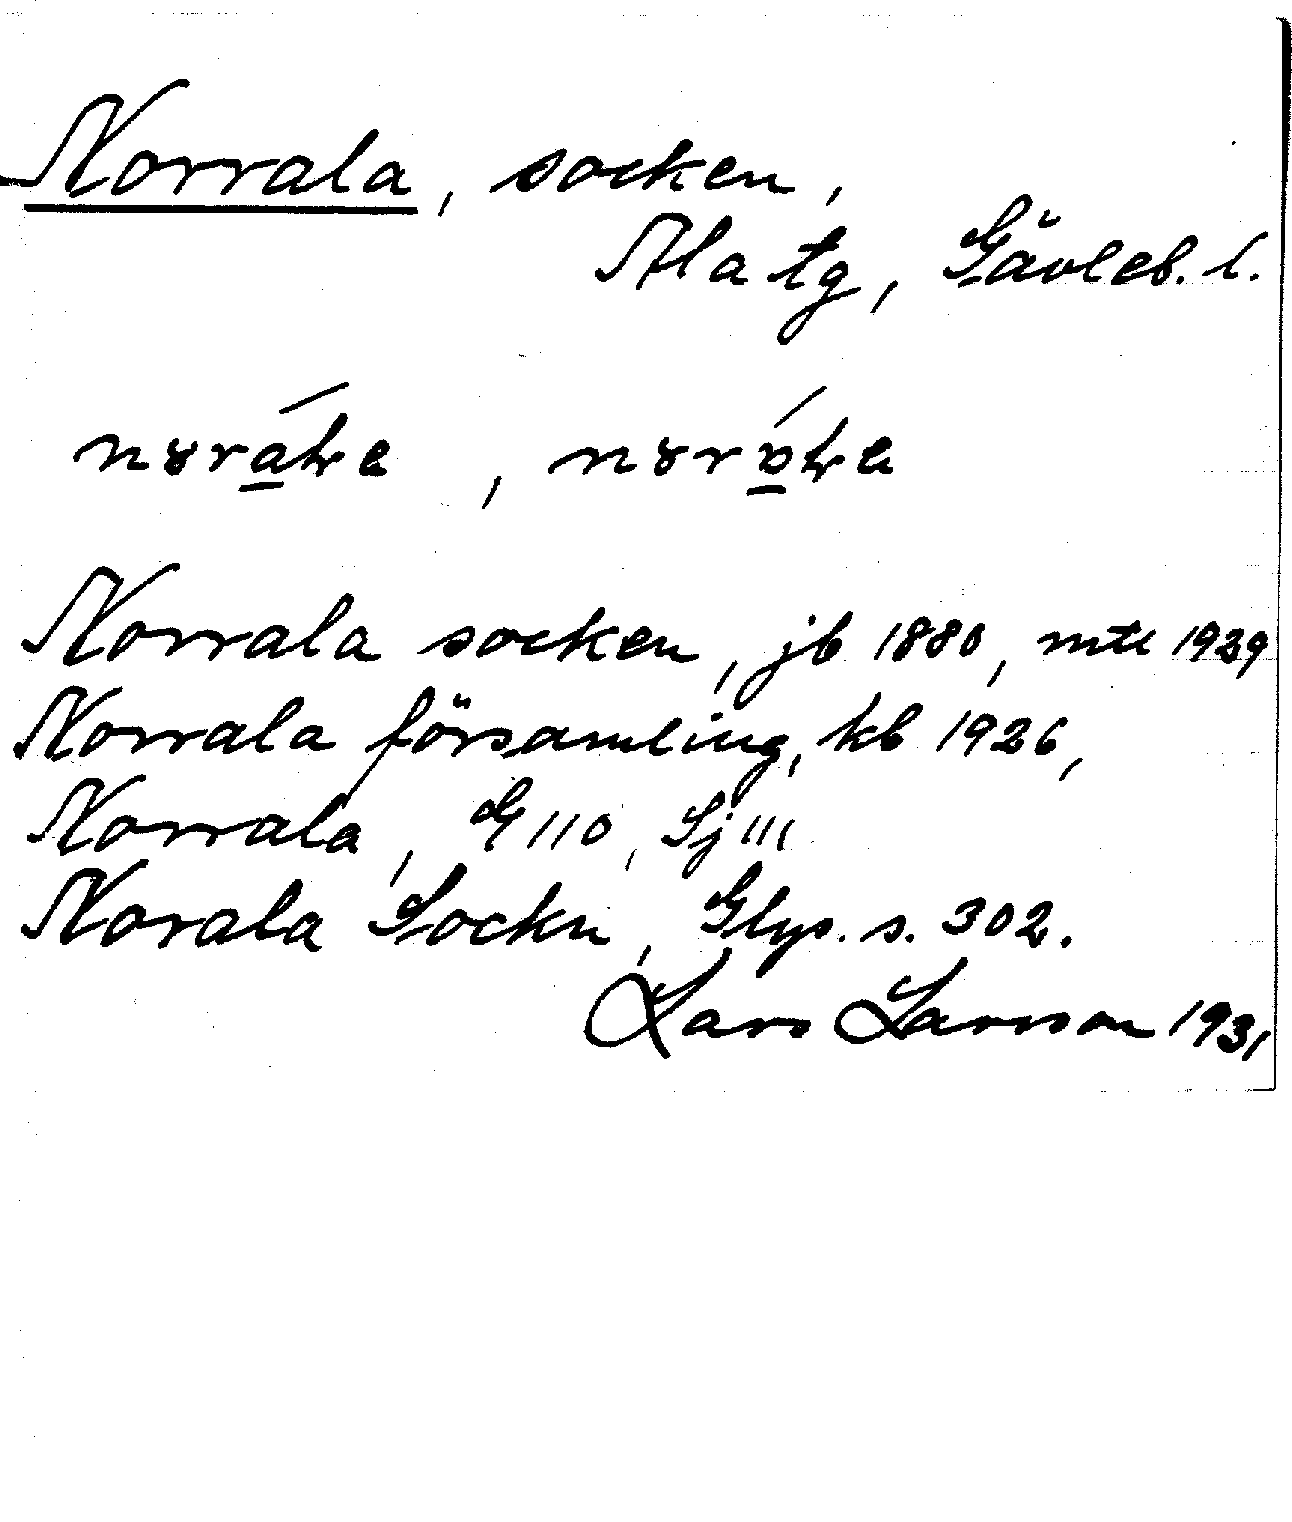 Norrala, socken,
Ala tg, Gävleb. l.
Norrala socken, jb 1880, mtl 1929
Norrala församling, kb 1926,
Norrala, G 110, Sj 111
Norala Sockn, Glys. s. 302.
Lars Larsson 1931